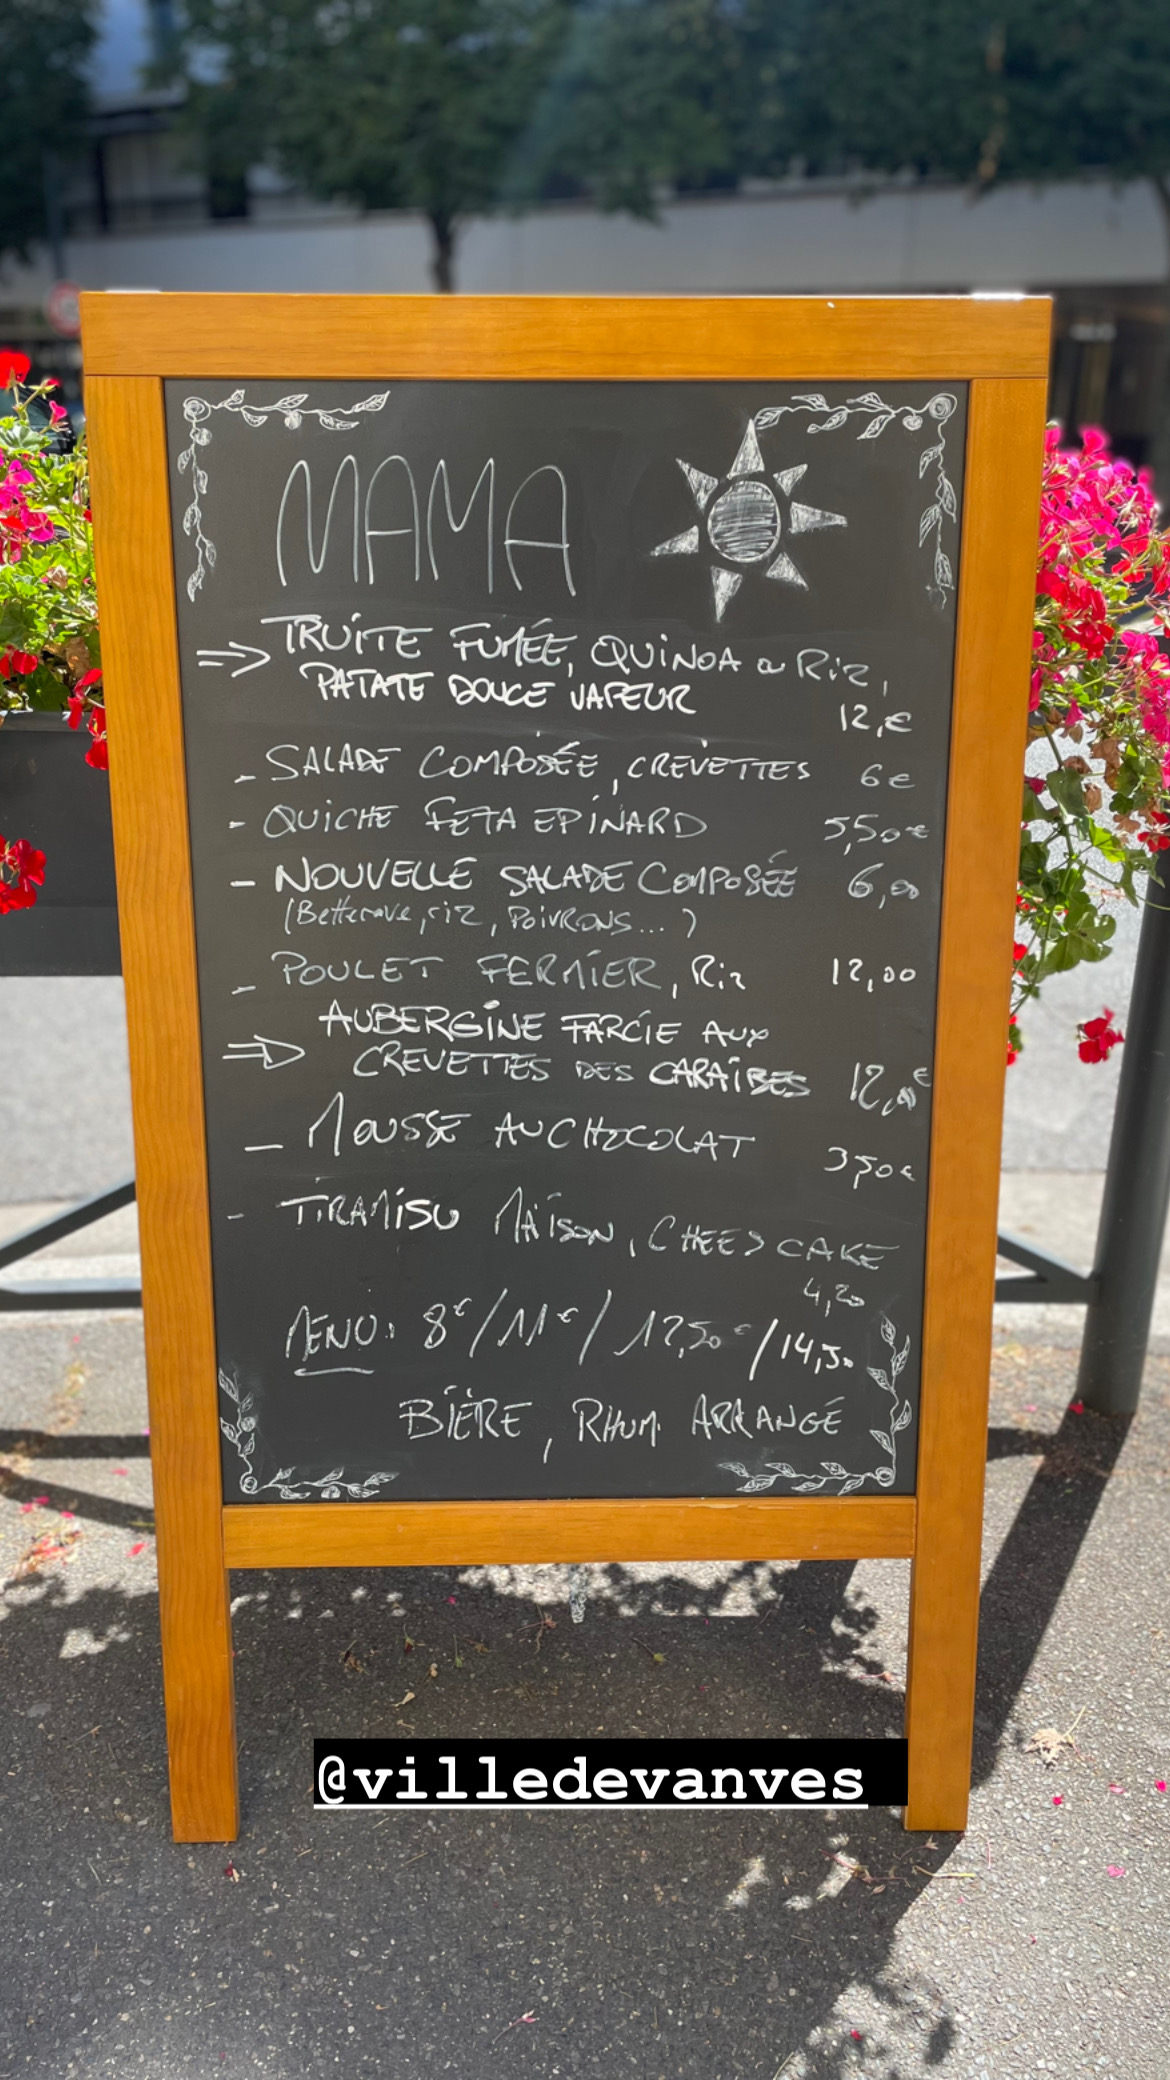 MAMA
⇒ TRUITE FUMÉE, QUINOA ou Riz,
PATATE DOUCE VAPEUR
12,€
- SALADE COMPOSÉE, CREVETTES 6€
- QUICHE FETA EPINARD 5,50€
- NOUVELLE SALADE COMPOSÉE 6,00
(Betterave, riz, POIVRONS...)
- POULET FERMIER, Riz 12,00
AUBERGINE FARCIE AUX
⇒ CREVETTES DES CARAÏBES 12,00€
- MOUSSE AU CHOCOLAT 3,50€
- TIRAMISU MAISON, CHEES CAKE
4,20
MENU: 8€/11€/12,50€/14,50
BIÈRE, RHUM ARRANGÉ
@villedevanves